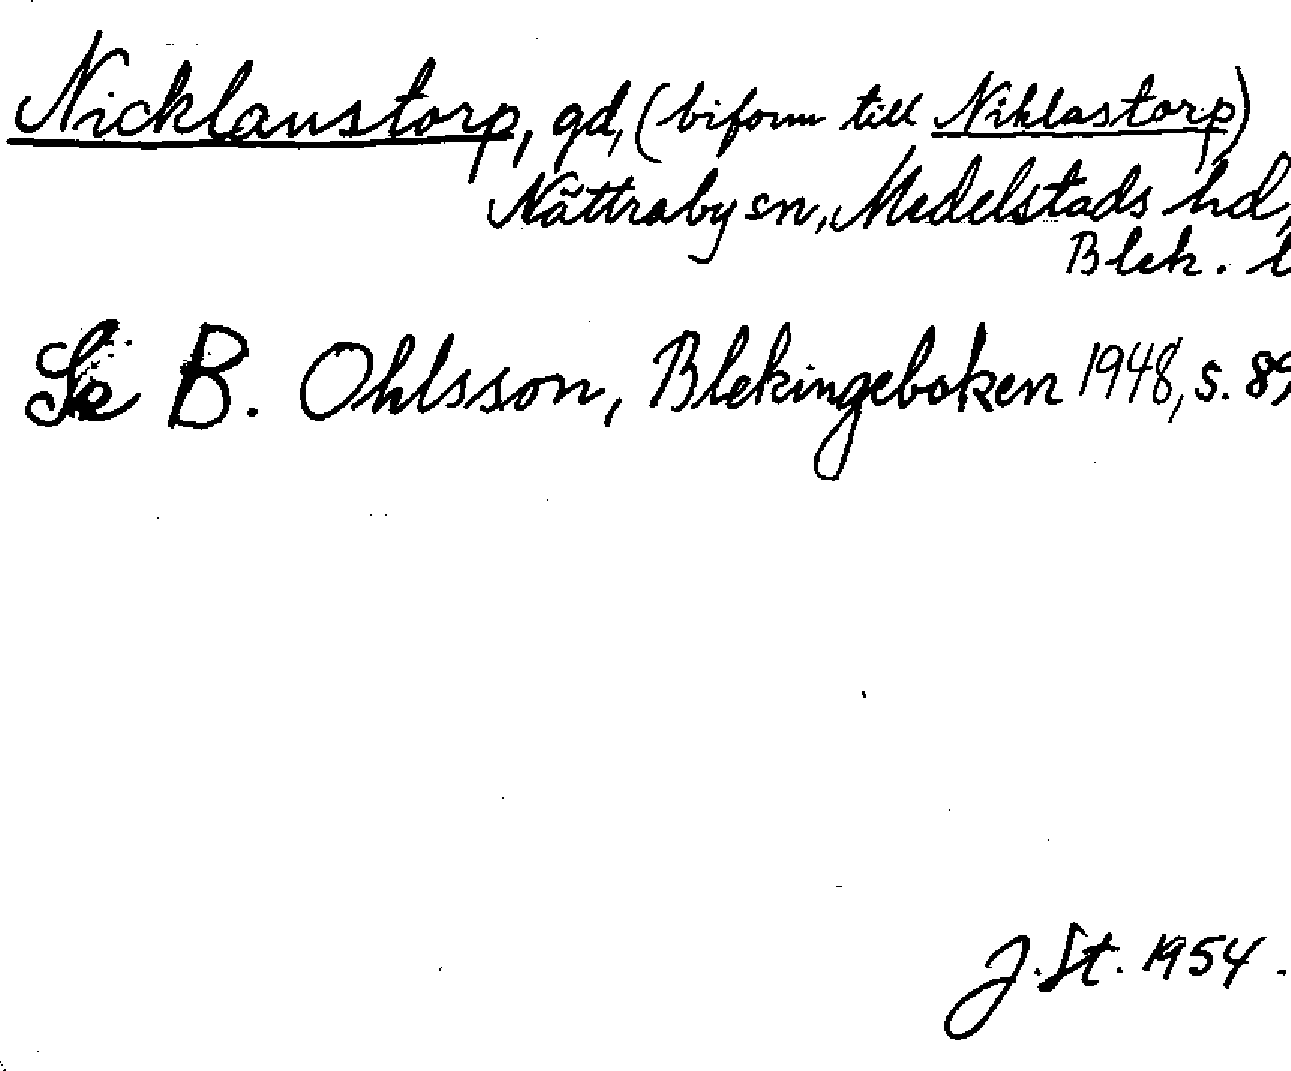 Nicklaustorp, gd, (biform till Niklastorp)
Nättraby sn, Medelstads hd,
Blek. l
Se B. Ohlsson, Blekingeboken 1948, s. 89
J. St. 1954.